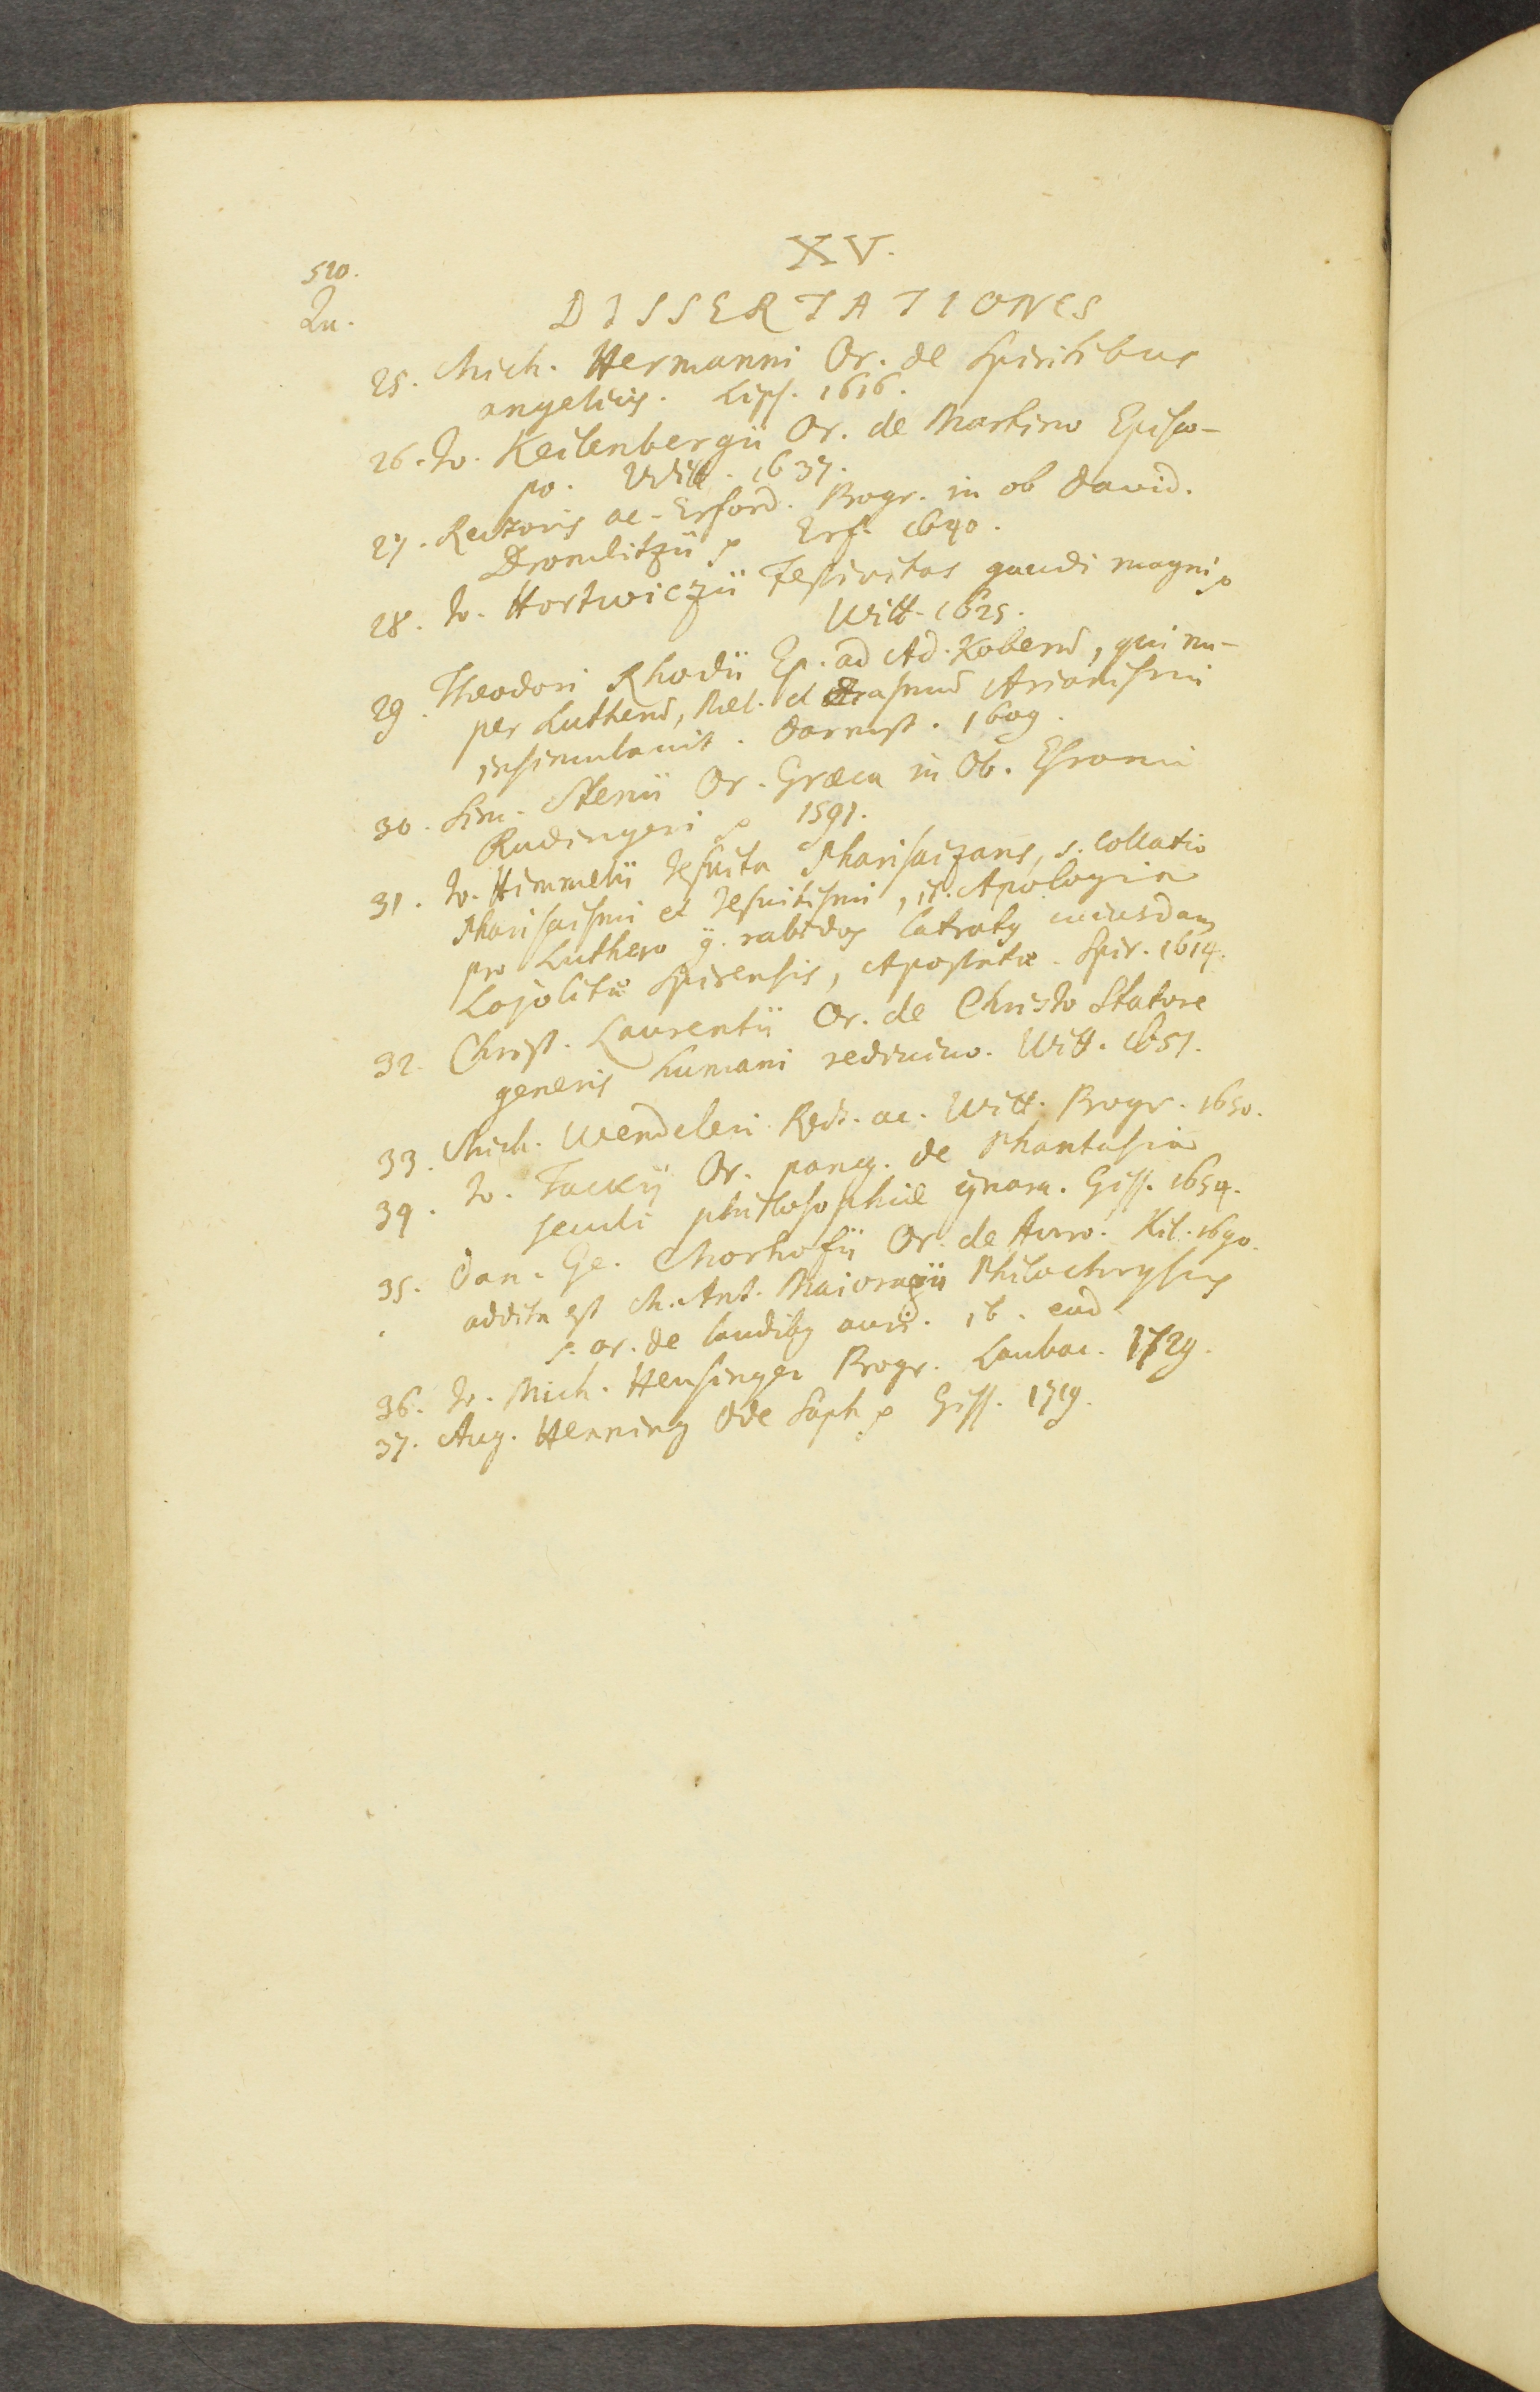 XV.
520.
Qu.
DISSERTATIONES
25. Mich. Hermanni Or. de Spiritibus
angelicis. Lips. 1616.
26. Io. Keilenbergii Or. de Martino Episco-
po. Witt. 1637.
27. Rectoris ac. Erford. Progr. in ob David.
Dromlitzii Erf. 1640.
28. Io. Hortwiczii Festivitas gaudi magni
Witt. 1625.
29. Theodori Rhodii Ep. ad Ad. Kobend, qui nu-
per Lutherū, Mel. et Erasmū Arianismi
insimulavit. Darmst. 1609.
30. Sim. Stenii Or. Græca in Ob. Esromi
Rudingeri 1591.
31. Io. Himmelii Iesuita Pharisaizans, s. collatio
Pharisaismi et Iesuitismi, it. Apologia
pro Luthero rabidos latratus cuiusdam
Lojolitæ Spirensis, Apostatæ. Spir. 1614.
32. Christ. Laurentii Or. de Christo Statore
generis humani redivivo. Witt. 1651.
33. Mich. Wendeleri Rect. ac. Witt. Progr. 1650.
34. Io. Tackii Or. paneg. de Phantasia
seculi philosophiæ ignara. Giss. 1654.
35. Dan. Ge. Morhofii Or. de Auro. Kil. 1690.
addita est M. Ant. Maioragii Philochrysus
s. or. de laudibus auri. ib. eod.
36. Io. Mich. Heusinger Progr. Laubac. 1729.
37. Aug. Henning Ode Saph Giss. 1719.